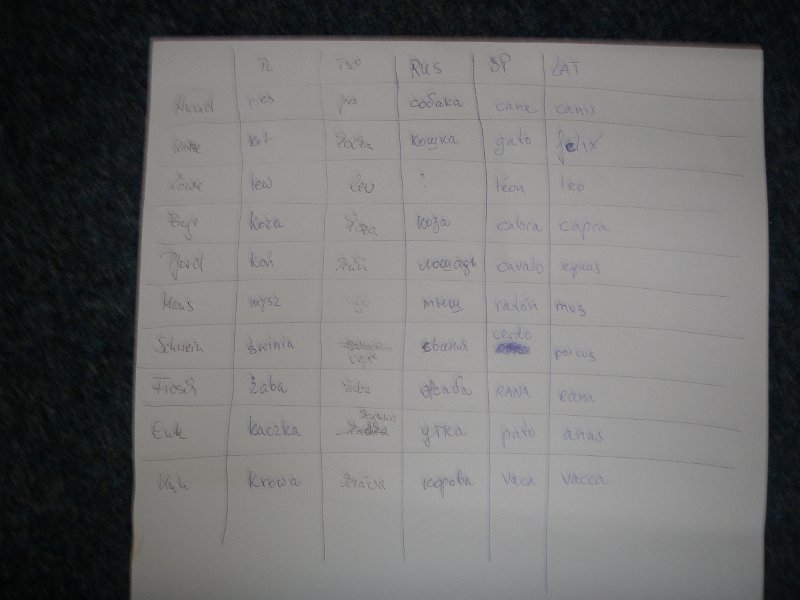 PL RUS SP LAT
Hund pies pes собака cane canis
kot kočka кошка gato felix
Löwe lew lev ? léon leo
Ziege koza koza коза cabra capra
Pferd koń kůň лошадь cavalo equus
Maus mysz мыщ ratón mus
cerdo
Schwein świnia свыня porcus
vepř
Frosch żaba žába жаба RANA rana
Ente kaczka утка pato anas
Kuh krowa kráva корова vaca vacca